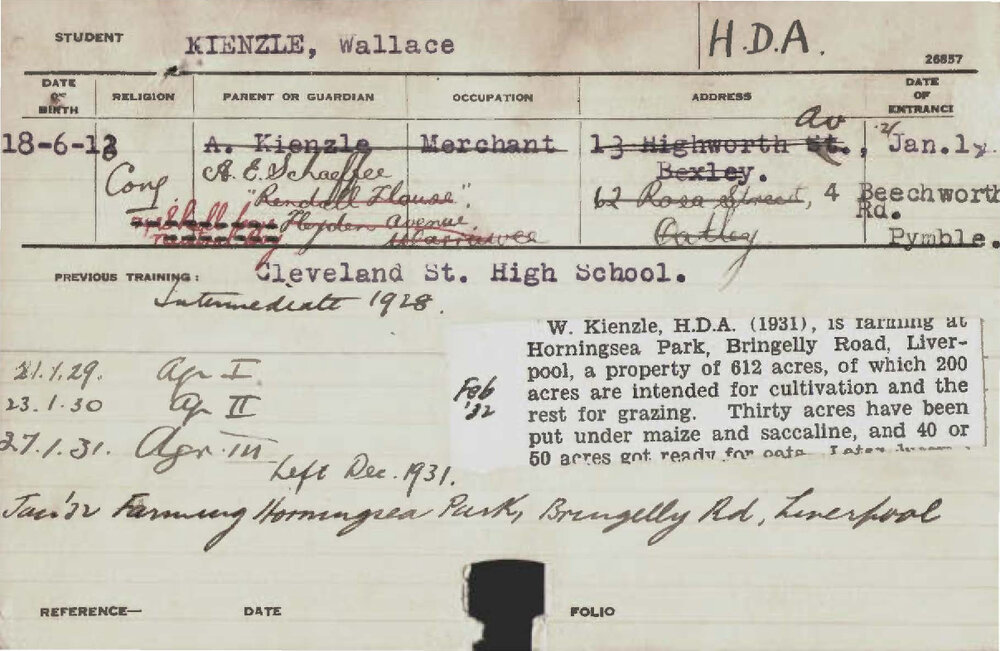 STUDENT KIENZLE, Wallace H.D.A.
26857
DATE OF BIRTH RELIGION PARENT OR GUARDIAN OCCUPATION ADDRESS DATE OF ENTRANCE
Av
18-6-12 A. Kienzle Merchant 13 Highworth St., 21 Jan.1
Cong A. E. Schaeffer Bexley.
"Rendall House". 62 Rosa Street, 4 Beechworth Rd.
Heyden Avenue Oatley Pymble.
Warrawee
PREVIOUS TRAINING: Cleveland St. High School.
Intermediate 1928.
21.1.29. Agr I
23.1.30 Agr II
27.1.31. Agr. III
Left Dec. 1931.
Feb '32
W. Kienzle, H.D.A. (1931), is farming at
Horningsea Park, Bringelly Road, Liver-
pool, a property of 612 acres, of which 200
acres are intended for cultivation and the
rest for grazing. Thirty acres have been
put under maize and saccaline, and 40 or
50 acres got ready for oats. Later
Jan '32 Farming Horningsea Park, Bringelly Rd, Liverpool
REFERENCE— DATE FOLIO